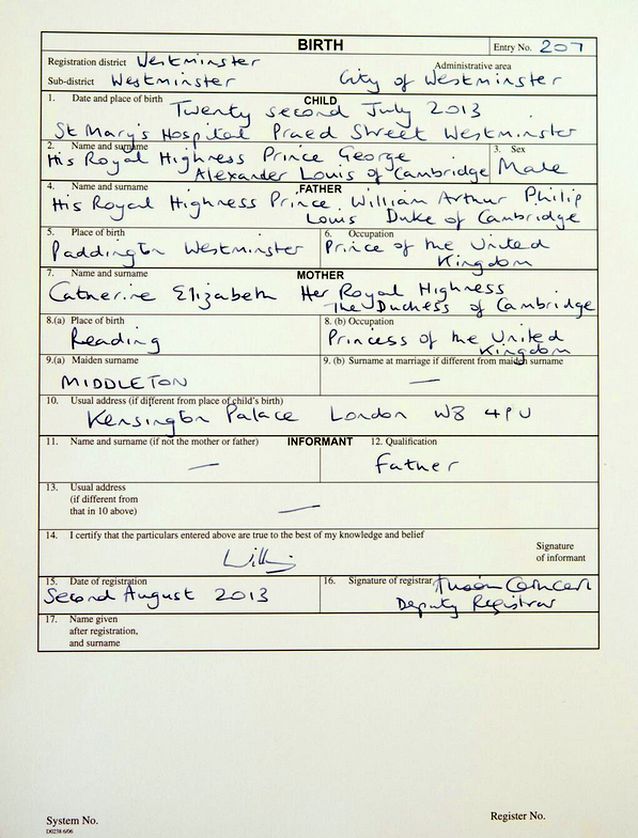 BIRTH Entry No. 207
Registration district Westminster Administrative area
Sub-district Westminster City of Westminster
1. Date and place of birth CHILD
Twenty second July 2013
St Mary's Hospital Praed Street Westminster
2. Name and surname 3. Sex
His Royal Highness Prince George
Alexander Louis of Cambridge Male
4. Name and surname FATHER
His Royal Highness Prince William Arthur Philip
Louis Duke of Cambridge
5. Place of birth 6. Occupation
Paddington Westminster Prince of the United
Kingdom
7. Name and surname MOTHER
Catherine Elizabeth Her Royal Highness
The Duchess of Cambridge
8.(a) Place of birth 8. (b) Occupation
Reading Princess of the United
Kingdom
9.(a) Maiden surname 9. (b) Surname at marriage if different from maiden surname
MIDDLETON —
10. Usual address (if different from place of child's birth)
Kensington Palace London W8 4PU
11. Name and surname (if not the mother or father) INFORMANT 12. Qualification
— Father
13. Usual address
(if different from
that in 10 above) —
14. I certify that the particulars entered above are true to the best of my knowledge and belief
Signature
of informant
15. Date of registration 16. Signature of registrar
Second August 2013 Deputy Registrar
17. Name given
after registration,
and surname
System No. Register No.
D0238 6/06